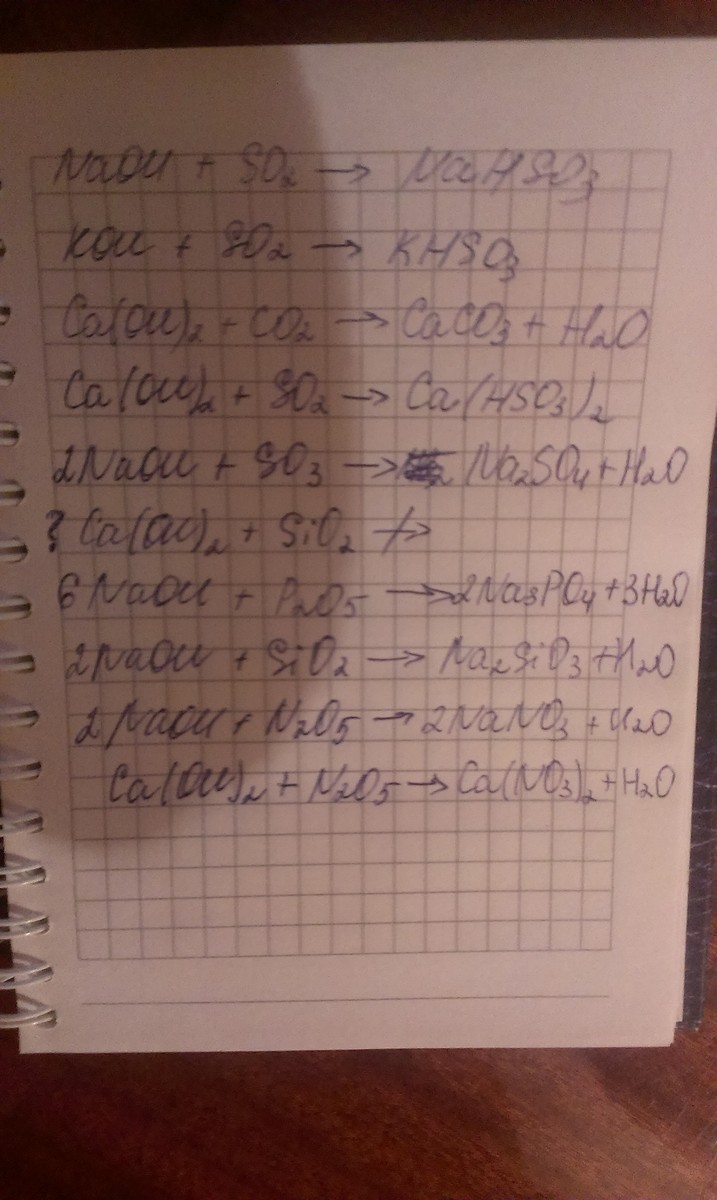 NaOH + SO₂ → NaHSO₃
KOH + SO₂ → KHSO₃
Ca(OH)₂ + CO₂ → CaCO₃ + H₂O
Ca(OH)₂ + SO₂ → Ca(HSO₃)₂
2NaOH + SO₃ → Na₂SO₄ + H₂O
? Ca(OH)₂ + SiO₂ ↛
6NaOH + P₂O₅ → 2Na₃PO₄ + 3H₂O
2NaOH + SiO₂ → Na₂SiO₃ + H₂O
2NaOH + N₂O₅ → 2NaNO₃ + H₂O
Ca(OH)₂ + N₂O₅ → Ca(NO₃)₂ + H₂O